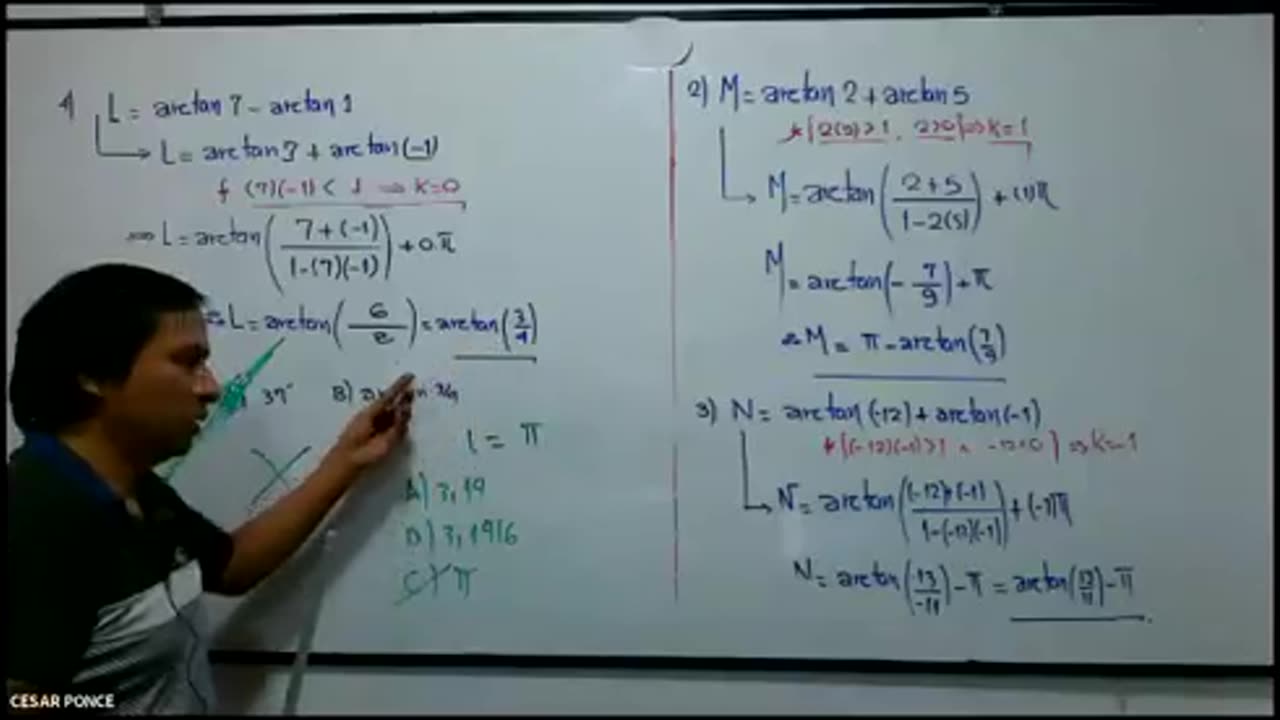 1) L = arctan 7 - arctan 1
L = arctan 7 + arctan(-1)
(7)(-1) < 1 ⇒ k=0
⇒ L = arctan( (7+(-1)) / (1-(7)(-1)) ) + 0.π
L = arctan( 6 / 8 ) = arctan(3/4)
37° B) 3/4
L = π
A) 3,14
B) 3,1416
C) π
2) M = arctan 2 + arctan 5
* [2(5)>1 , 2>0] ⇒ k=1
M = arctan( (2+5) / (1-2(5)) ) + (1)π
M = arctan(- 7/9) + π
M = π - arctan(7/9)
3) N = arctan(-12) + arctan(-1)
* [(-12)(-1)>1 ∧ -12<0] ⇒ k=-1
N = arctan( ((-12)+(-1)) / (1-(-12)(-1)) ) + (-1)π
N = arctan( -13 / -11 ) - π = arctan(13/11) - π
CESAR PONCE